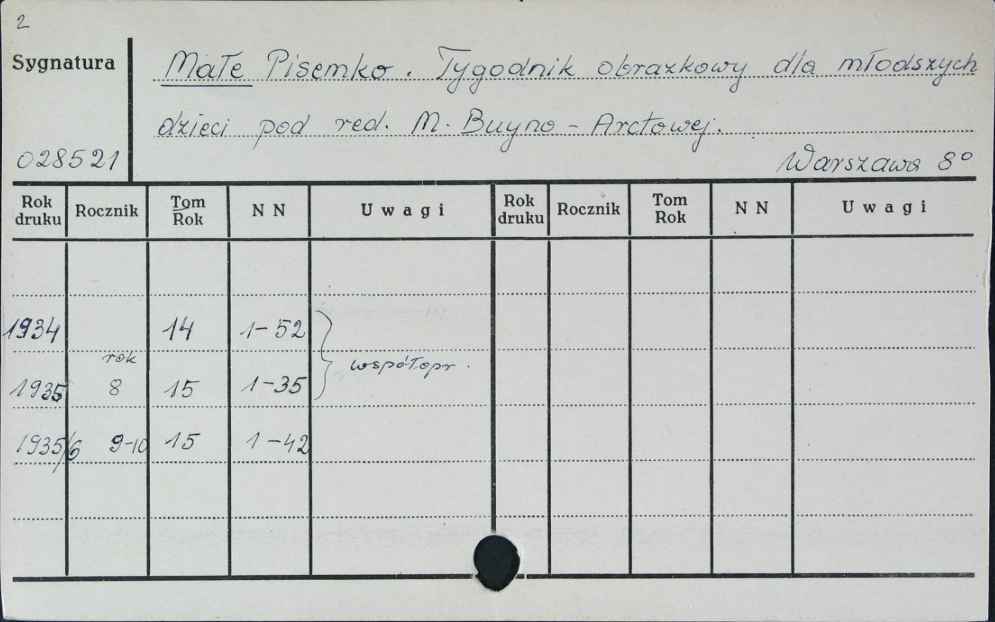 2
Sygnatura
Małe Pisemko. Tygodnik obrazkowy dla młodszych
dzieci pod red. M. Buyno-Arctowej.
028521
Warszawa 8°
Rok druku Rocznik Tom Rok NN Uwagi Rok druku Rocznik Tom Rok NN Uwagi
1934 14 1-52
rok
współopr.
1935 8 15 1-35
1935/6 9-10 15 1-42